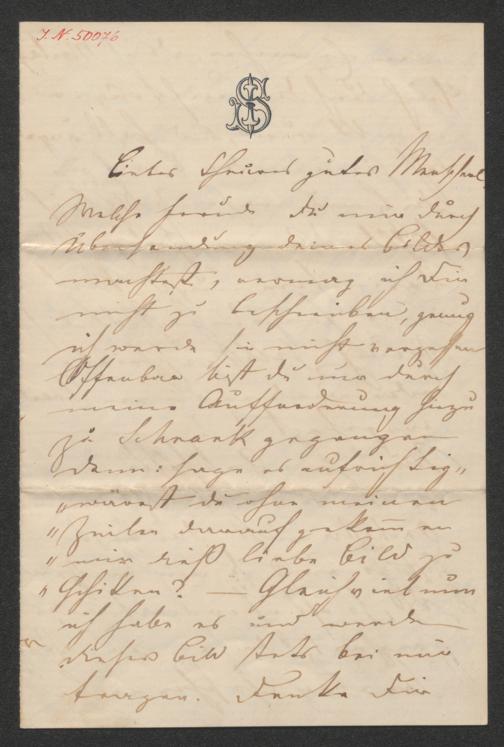 J. N. 50076
JS
Liebes theures gutes Menscherl
Welche Freude du mir durch
Übersendung deines Bildes
machtest, vermag ich Dir
nicht zu beschreiben, genug
ich werde sie nicht vergessen
Offenbar bist du nur durch
meine Aufforderung hiezu
zu Schrank gegangen
denn: sage es aufrichtig „
„wärest du ohne meinen
„Zeilen darauf gekommen
„mir dieß liebe Bild zu
„schicken? — Gleichviel nun
ich habe es und werde
dieses Bild stets bei mir
tragen. Denke Dir